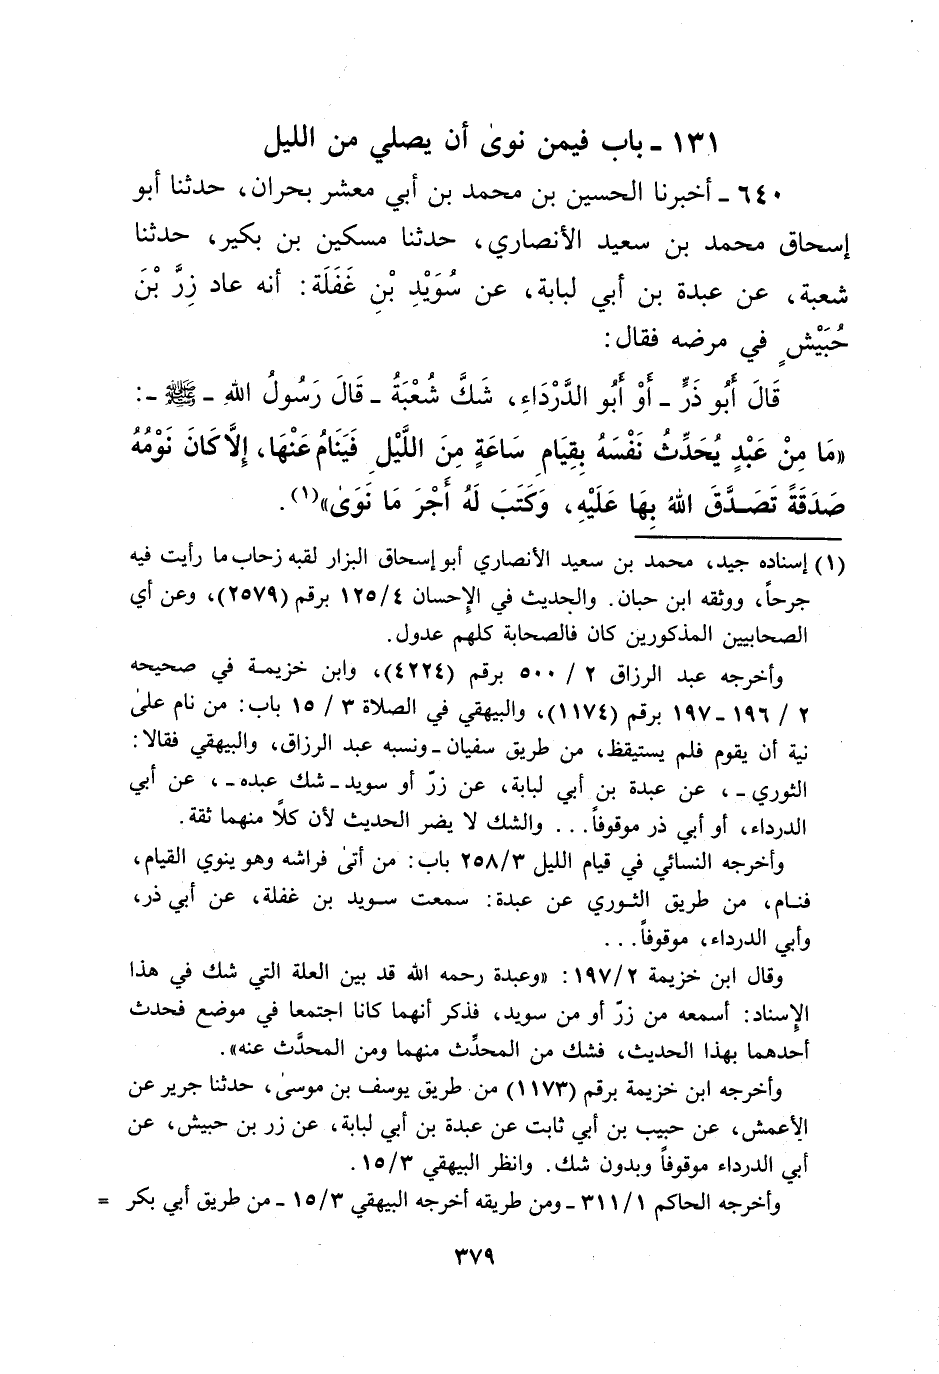 ١٣١ ـ باب فيمن نوىٰ أن يصلي من الليل
٦٤٠ ـ أخبرنا الحسين بن محمد بن أبي معشر بحران، حدثنا أبو
إسحاق محمد بن سعيد الأنصاري، حدثنا مسكين بن بكير، حدثنا
شعبة، عن عبدة بن أبي لبابة، عن سُوَيْدِ بْنِ غَفَلَة: أنه عاد زِرَّ بْنَ
حُبَيْشٍ في مرضه فقال:
قَالَ أَبُو ذَرٍّ ـ أَوْ أَبُو الدَّرْدَاءِ، شَكَّ شُعْبَةُ ـ قَالَ رَسُولُ اللهِ ـ ﷺ ـ:
«مَا مِنْ عَبْدٍ يُحَدِّثُ نَفْسَهُ بِقِيَامِ سَاعَةٍ مِنَ اللَّيْلِ فَيَنَامُ عَنْهَا، إِلاَّ كَانَ نَوْمُهُ
صَدَقَةً تَصَدَّقَ اللهُ بِهَا عَلَيْهِ، وَكَتَبَ لَهُ أَجْرَ مَا نَوَىٰ»(١).
(١) إسناده جيد، محمد بن سعيد الأنصاري أبو إسحاق البزار لقبه زحاب ما رأيت فيه
جرحاً، ووثقه ابن حبان. والحديث في الإحسان ١٢٥/٤ برقم (٢٥٧٩)، وعن أي
الصحابيين المذكورين كان فالصحابة كلهم عدول.
وأخرجه عبد الرزاق ٢ / ٥٠٠ برقم (٤٢٢٤)، وابن خزيمة في صحيحه
٢ / ١٩٦ ـ ١٩٧ برقم (١١٧٤)، والبيهقي في الصلاة ٣ / ١٥ باب: من نام علىٰ
نية أن يقوم فلم يستيقظ، من طريق سفيان ـ ونسبه عبد الرزاق، والبيهقي فقالا:
الثوري ـ، عن عبدة بن أبي لبابة، عن زرّ أو سويد ـ شك عبده ـ، عن أبي
الدرداء، أو أبي ذر موقوفاً... والشك لا يضر الحديث لأن كلاً منهما ثقة.
وأخرجه النسائي في قيام الليل ٢٥٨/٣ باب: من أتىٰ فراشه وهو ينوي القيام،
فنام، من طريق الثوري عن عبدة: سمعت سويد بن غفلة، عن أبي ذر،
وأبي الدرداء، موقوفاً...
وقال ابن خزيمة ١٩٧/٢: «وعبدة رحمه الله قد بين العلة التي شك في هذا
الإسناد: أسمعه من زرّ أو من سويد، فذكر أنهما كانا اجتمعا في موضع فحدث
أحدهما بهذا الحديث، فشك من المحدِّث منهما ومن المحدَّث عنه».
وأخرجه ابن خزيمة برقم (١١٧٣) من طريق يوسف بن موسىٰ، حدثنا جرير عن
الأعمش، عن حبيب بن أبي ثابت عن عبدة بن أبي لبابة، عن زر بن حبيش، عن
أبي الدرداء موقوفاً وبدون شك. وانظر البيهقي ١٥/٣.
وأخرجه الحاكم ٣١١/١ ـ ومن طريقه أخرجه البيهقي ١٥/٣ ـ من طريق أبي بكر =
٣٧٩